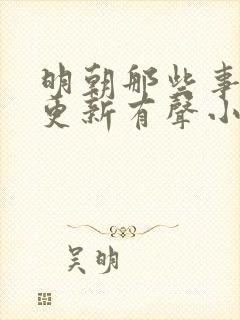 明朝那些事
更新有聲小
吴明